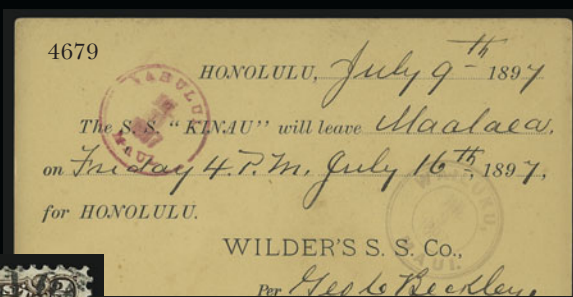 4679
HONOLULU, July 9th 1897
KAHULUI
MAUI
The S. S. "KINAU" will leave Maalaea,
on Friday 4. P.M. July 16th, 1897,
for HONOLULU.
WAILUKU,
MAUI.
WILDER'S S. S. Co.,
Per Geo C Beckley.